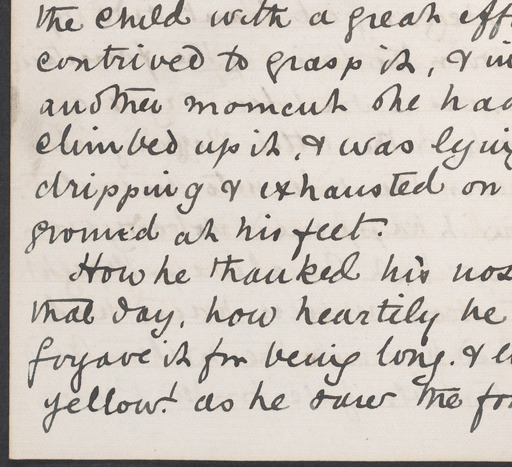 the child with a great eff
contrived to grasp it, & in
another moment she had
climbed up it, & was lying
dripping & exhausted on
ground at his feet.
How he thanked his nos
that day, how heartily he
forgave it for being long, &
yellow! as he saw the fo